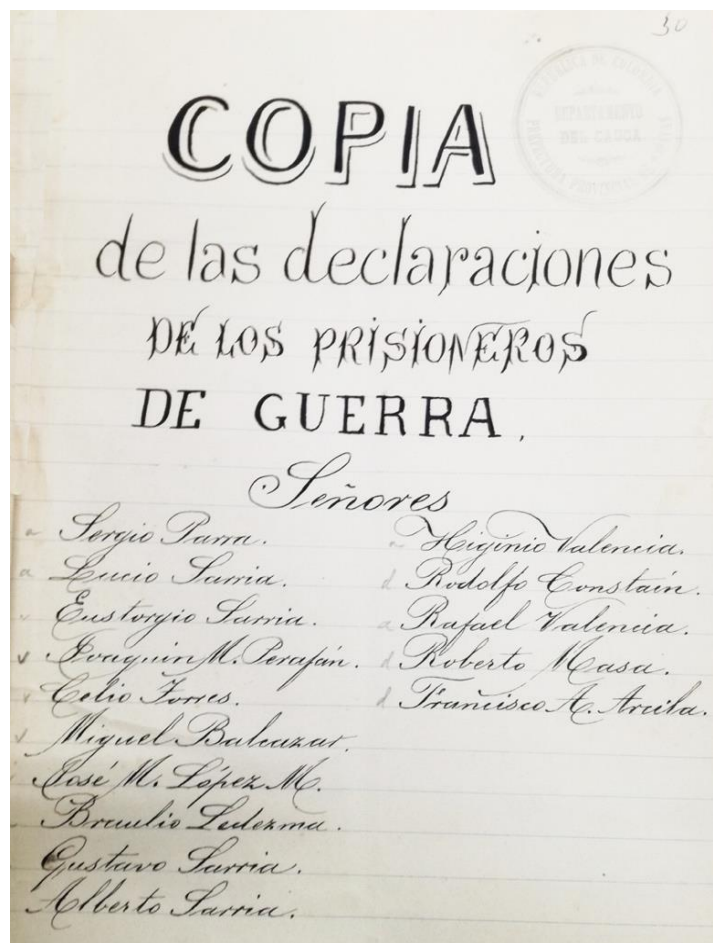 30
REPUBLICA DE COLOMBIA
DEPARTAMENTO
DEL CAUCA
COPIA
de las declaraciones
DE LOS PRISIONEROS
DE GUERRA.
Señores
a Sergio Parra.
a Lucio Sarria.
v Eustorgio Sarria.
v Joaquin M. Perafán.
v Celio Torres.
v Miguel Balcazar.
José M. López M.
Braulio Ledezma.
Gustavo Sarria.
Alberto Sarria.
a Higinio Valencia.
d Rodolfo Constaín.
a Rafael Valencia.
d Roberto Masa.
d Francisco A. Arcila.